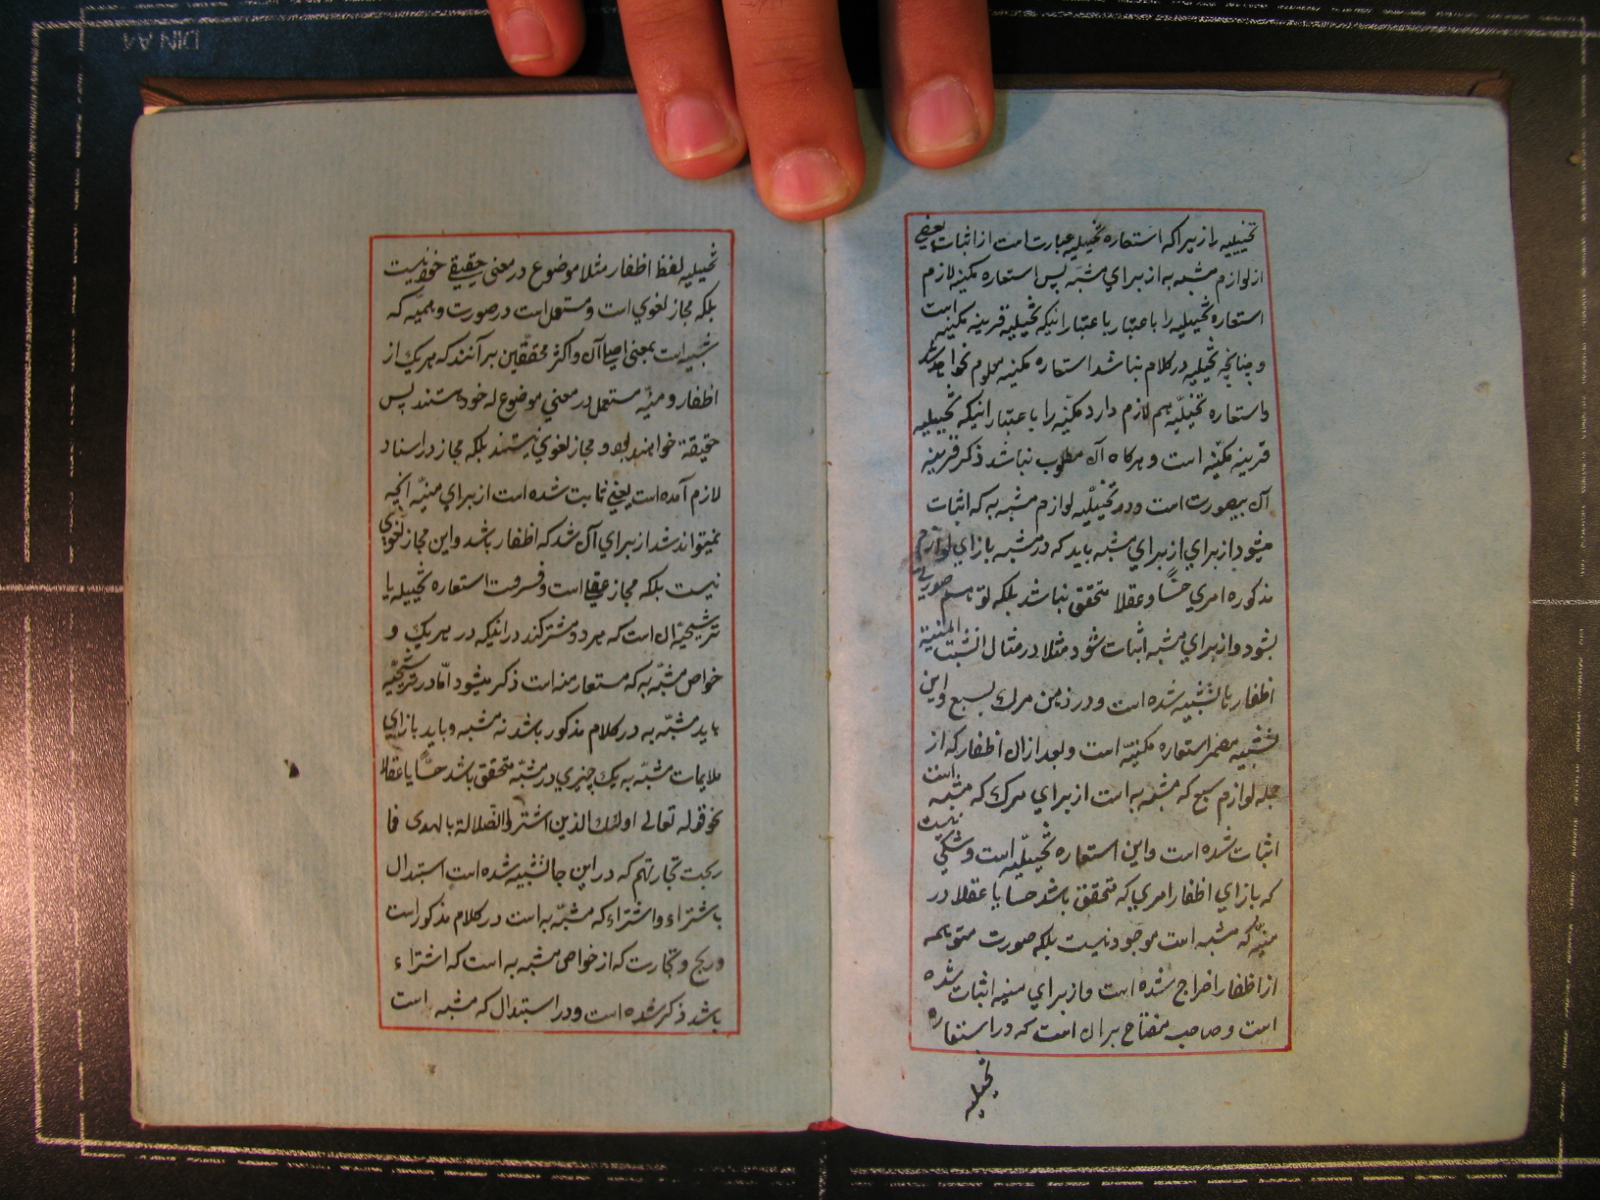 تخییلیه را زیرا که استعاره تخییلیه عبارت است از اثبات بعضی
از لوازم مشبه به از برای مشبه پس استعاره مکنیه لازم
استعاره تخییلیه را باعتبار باعتبار اینکه تخییلیه قرینه مکنیه است
و چنانچه تخییلیه در کلام نباشد استعاره مکنیه معلوم نخواهد شد
و استعاره تخییلیه هم لازم دارد مکنیه را باعتبار اینکه تخییلیه
قرینه مکنیه است و هرکاه آن مطلوب نباشد ذکر قرینه
آن بیصورت است و در تخییلیه لوازم مشبه به که اثبات
میشود از برای از برای مشبه باید که در مشبه بازای لوازم
مذکوره امری حسّا و عقلا متحقق نباشد بلکه توهم صورتی
بشود و از برای مشبه اثبات شود مثلا در مثال انشبت المنیة
اظفارها تشبیه شده است و در ذهن مرک بسبع و این
تشبیه مضمر استعاره مکنیّه است و بعد از ان اظفار که از
جمله لوازم سبع که مشبه به است از برای مرک که مشبه است
اثبات شده است و این استعاره تخییلیّه است و شکی نیست
که بازای اظفار امری که متحقق باشد حسا یا عقلا در
منیّه که مشبه است موجود نیست بلکه صورت متوهمه
از اظفار اخراج شده است و از برای منیه اثبات شده
است و صاحب مفتاح بر ان است که در استعاره
تخییلیه
تخییلیه لفظ اظفار مثلا موضوع در معنی حقیقی خود نیست
بلکه مجاز لغوی است و مستعمل است در صورت وهمیّه که
شبیه است بمعنی اصلی آن و اکثر محققین بر آنند که هر یک از
اظفار و منیّه مستعمل در معنی موضوع له خود هستند پس
حقیقة خواهند بود و مجاز لغوی نیستند بلکه مجاز در اسناد
لازم آمده است یعنی ثابت شده است از برای منیّه انچه
نمیتواند شد از برای آن شد که اظفار باشد و این مجاز لغوی
نیست بلکه مجاز عقلی است و فرق استعاره تخییلیه با
ترشیحیّه آن است که هر دو مشترکند در اینکه در هر یک و
خواص مشبّه به که مستعار منه است ذکر میشود امّا در ترشیحیّه
باید مشبّه به در کلام مذکور باشد نه مشبه و باید بازای
ملایمات مشبّه به یک چیزی در مشبّه متحقق باشد حسّا یا عقلا
نحو قوله تعالی اولئک الذین اشتروا الضّلالة بالهدی فا
ربحت تجارتهم که در این جا تشبیه شده است استبدال
باشتراء و اشتراء که مشبّه به است در کلام مذکور است
و ربح و تجارت که از خواص مشبه به است که اشتراء
باشد ذکر شده است و در استبدال که مشبه است